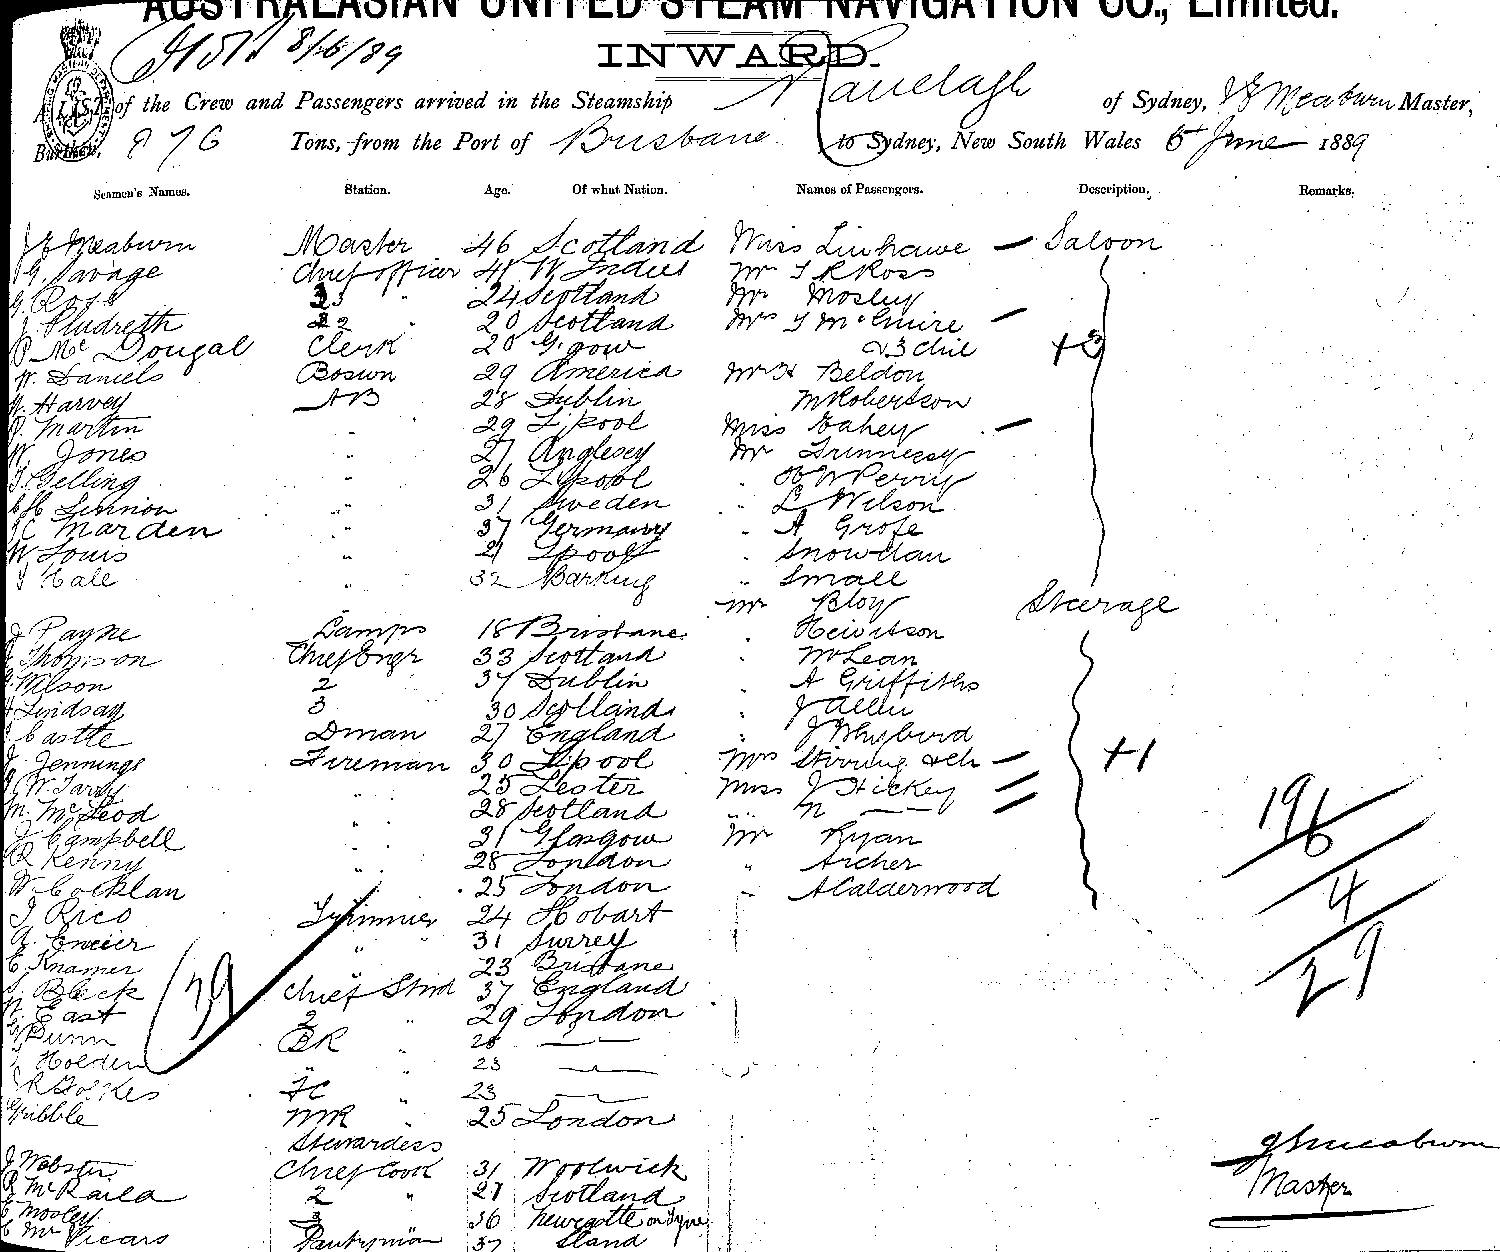 AUSTRALASIAN UNITED STEAM NAVIGATION CO., Limited.
8/6/89
INWARD.
A LIST of the Crew and Passengers arrived in the Steamship Ranelagh of Sydney, J S Meaburn Master,
Burthen, 876 Tons, from the Port of Brisbane to Sydney, New South Wales 6th June 1889
Seamen's Names. Station. Age. Of what Nation. Names of Passengers. Description. Remarks.
J S Meaburn Master 46 Scotland Miss — Saloon
G. Savage Chief officer 41 W. Indies Mr T R Ross
G Ross " 24 Scotland Mr Mosley
J. Pludreth 2 " 20 Scotland Mrs T McGuire —
P Mc Dougal Clerk 20 G. gow & 3 chil +3
W. Daniels Boswn 29 America Mr H Beldon
W. Harvey AB 28 Dublin McRobertson
P. Martin " 29 L'pool Miss Fahey —
W. Jones " 27 Anglesey Mr
T. Gelling " 26 L'pool " H W Perry
Lennon " 31 Sweden " L Wilson
Marden " 37 Germany " A Grofe
W Louis " 21 L'pool " Snowdan
T Cale " 32 Barking " Small
Mr Bloy Steerage
J Payne Lamps 18 Brisbane " Hewitson
Thomson Chief Engr 33 Scotland " McLean
Wilson 2 37 Dublin " A Griffiths
Lindsay 3 30 Scotland " J Allen
Castle Dman 27 England " J Whybird
J. Jennings Fireman 30 L'pool Mrs Stirring & ch — +1
W. Tardy " 25 Lester Miss J Hickey —
M. McLeod " 28 Scotland " N — —
J Campbell " 31 Glasgow Mr Ryan
Kenny " 28 London " Archer
W. Cocklan " 25 London " A Calderwood
J Rico Trimmer 24 Hobart
A. " 31 Surrey
E. Knamer " 23 Brisbane
Bleck Chief Stwd 37 England
W. East 2 " 29 London
Dunn BR " 28 —
Holden " " 23 —
FC " 23 —
Gribble MR " 25 London
Stewardess
J Webster Chief Cook 31 Woolwick
2 " 27 Scotland
Mosley 3 36 Newcastle on Tyne
Mc Vicars Pantryman 37
(39
19
6
4
29
J S Meaburn
Master